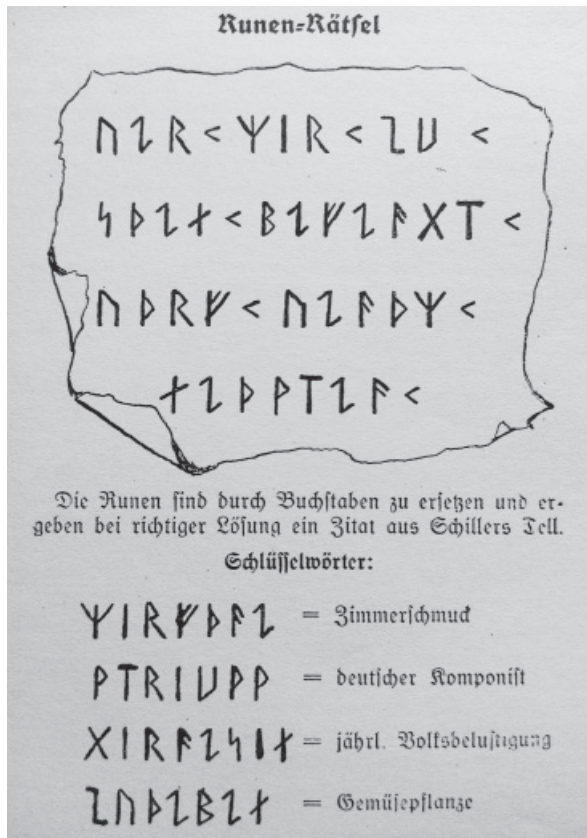 Runen=Rätſel
ᚢᛇᚱ<ᛉᛁᚱ<ᛇU<
ᛋᚦᛇᚾ<ᛒᛇᚠᛇᚨᚷᛏ<
ᚢᚦᚱᚠ<ᚢᛇᚨᚦᛉ<
ᚾᛇᚦᚹᛏᛇᚨ<
Die Runen ſind durch Buchſtaben zu erſetzen und er-
geben bei richtiger Löſung ein Zitat aus Schillers Tell.
Schlüſſelwörter:
ᛉᛁᚱᚠᚦᚨᛇ = Zimmerſchmuck
ᚹᛏᚱᛁUᚹᚹ = deutſcher Komponiſt
ᚷᛁᚱᚨᛇᛋᛁᚾ = jährl. Volksbeluſtigung
ᛇᚢᚦᛇᛒᛇᚾ = Gemüſepflanze